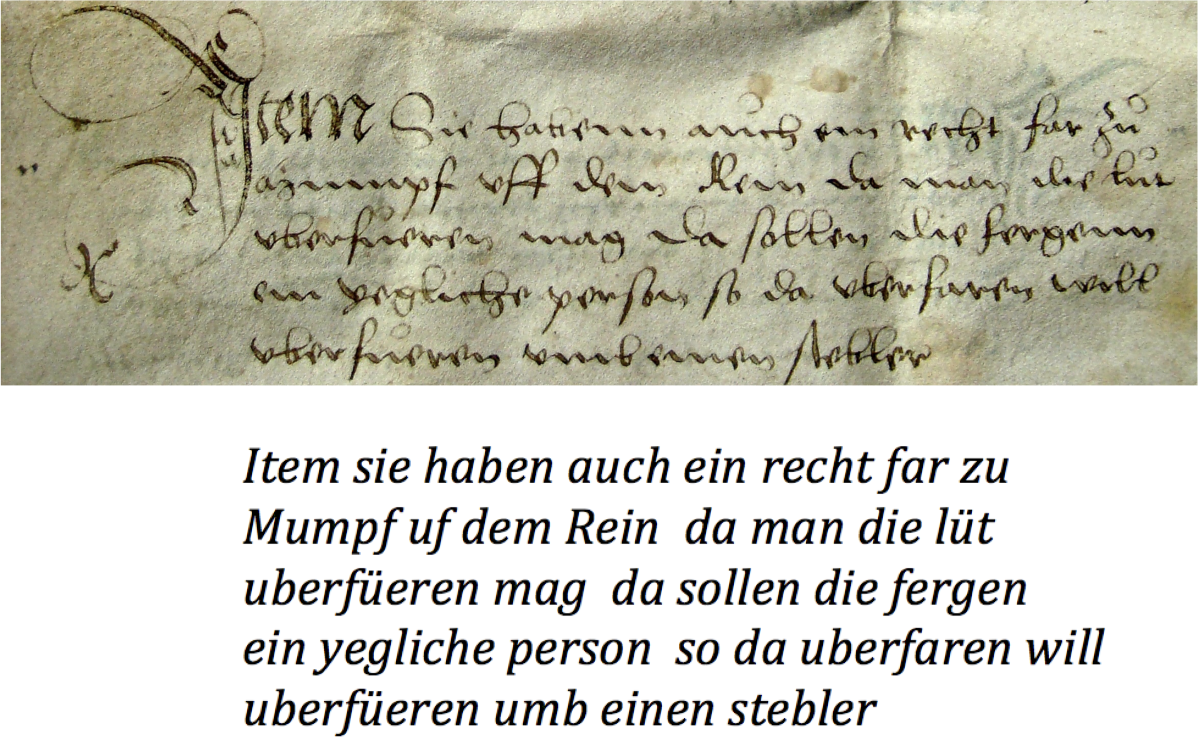 Item Sie habenn auch ein recht far zů
Mumpf vff dem Rein da man die lüt
vberfüeren mag da sollen die fergenn
ein yegliche person so da vberfaren will
vberfüeren vmb einen stebler
Item sie haben auch ein recht far zu
Mumpf uf dem Rein da man die lüt
uberfüeren mag da sollen die fergen
ein yegliche person so da uberfaren will
uberfüeren umb einen stebler